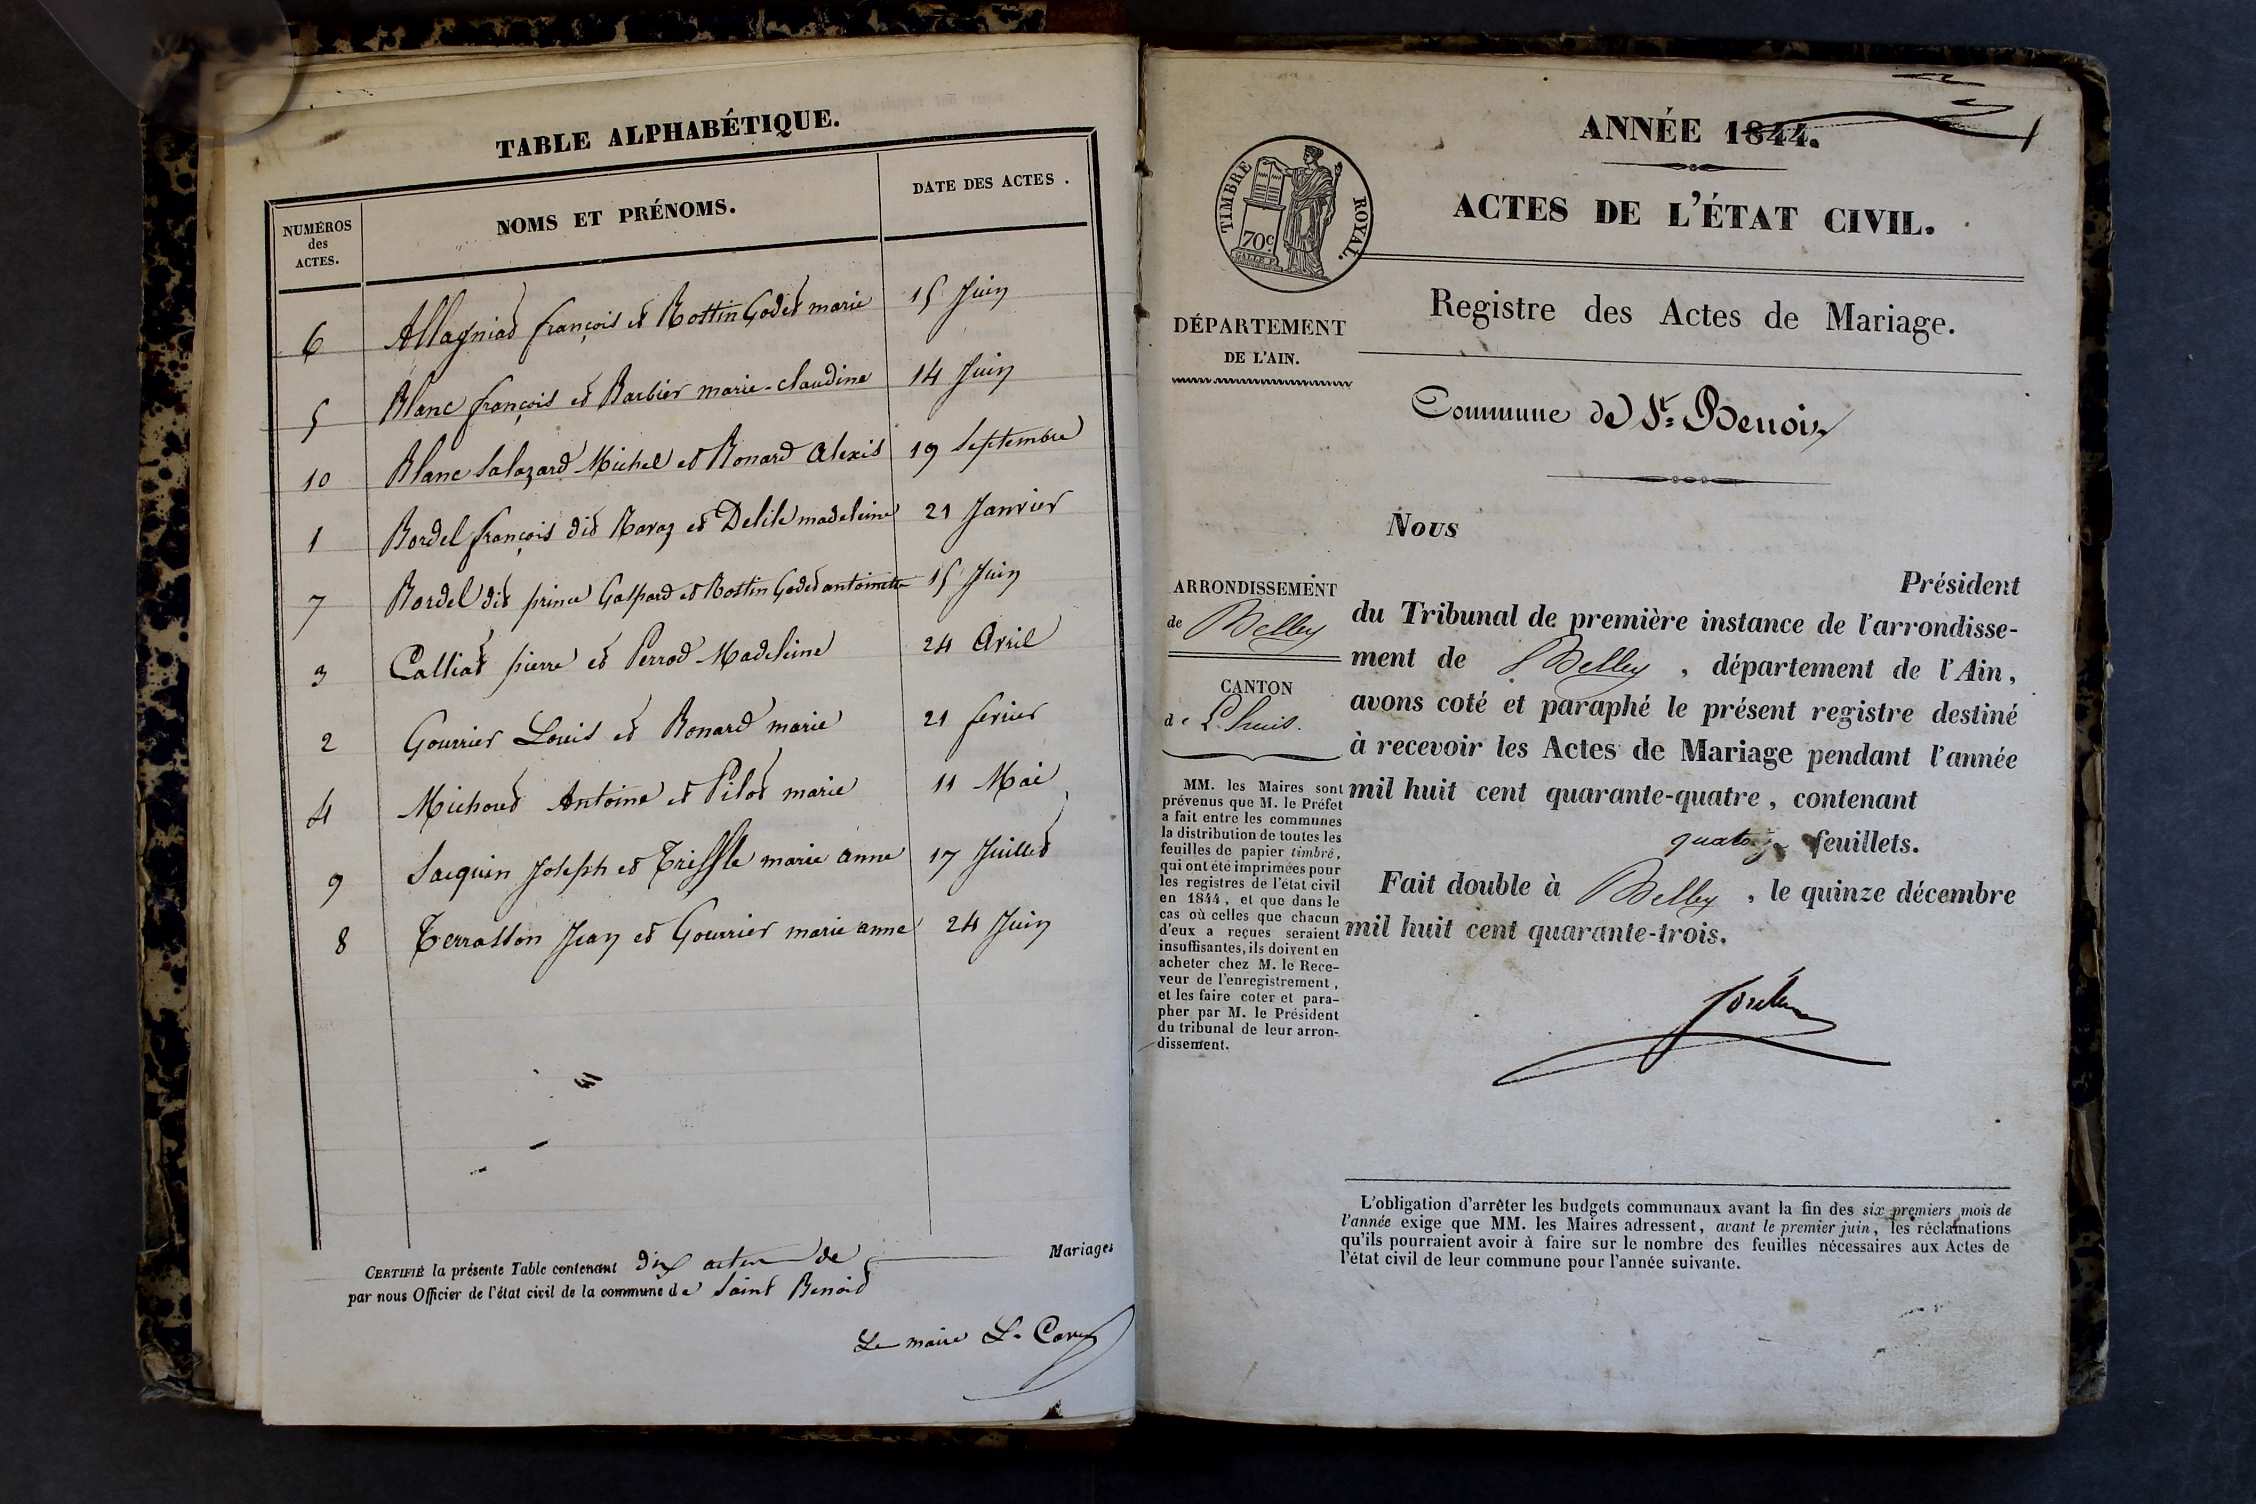 TABLE ALPHABÉTIQUE.
NUMÉROS des ACTES. NOMS ET PRÉNOMS. DATE DES ACTES.
6 Allagniat françois et Bottin Godet marie 15 Juin
5 Blanc françois et Barbier marie-claudine 14 Juin
10 Blanc Salazard Michel et Bonard Alexis 19 Septembre
1 Bordel françois dit Ravaz et Delile madeleine 21 Janvier
7 Bordel dit prince Gaspard et Bottin Godet antoinette 15 Juin
3 Calliat pierre et Perrod Madeleine 24 Avril
2 Gourrier Louis et Bonard marie 21 fevrier
4 Michoud Antoine et Pilot marie 11 Mai
9 Saequin Joseph et Triffle marie anne 17 Juillet
8 Terrasson Jean et Gourrier marie anne 24 Juin
CERTIFIÉ la présente Table contenant dix actes de Mariages
par nous Officier de l'état civil de la commune de Saint Benoit
Le maire L. Cave
ANNÉE 1844.
TIMBRE ROYAL.
70c
ACTES DE L'ÉTAT CIVIL.
DÉPARTEMENT
DE L'AIN.
Registre des Actes de Mariage.
Commune de St. Benoit
ARRONDISSEMENT
de Belley
CANTON
de L'huis.
MM. les Maires sont
prévenus que M. le Préfet
a fait entre les communes
la distribution de toutes les
feuilles de papier timbré,
qui ont été imprimées pour
les registres de l'état civil
en 1844, et que dans le
cas où celles que chacun
d'eux a reçues seraient
insuffisantes, ils doivent en
acheter chez M. le Rece-
veur de l'enregistrement,
et les faire coter et para-
pher par M. le Président
du tribunal de leur arron-
dissement.
Nous
Président
du Tribunal de première instance de l'arrondisse-
ment de Belley, département de l'Ain,
avons coté et paraphé le présent registre destiné
à recevoir les Actes de Mariage pendant l'année
mil huit cent quarante-quatre, contenant
quatorze feuillets.
Fait double à Belley, le quinze décembre
mil huit cent quarante-trois.
L'obligation d'arrêter les budgets communaux avant la fin des six premiers mois de
l'année exige que MM. les Maires adressent, avant le premier juin, les réclamations
qu'ils pourraient avoir à faire sur le nombre des feuilles nécessaires aux Actes de
l'état civil de leur commune pour l'année suivante.